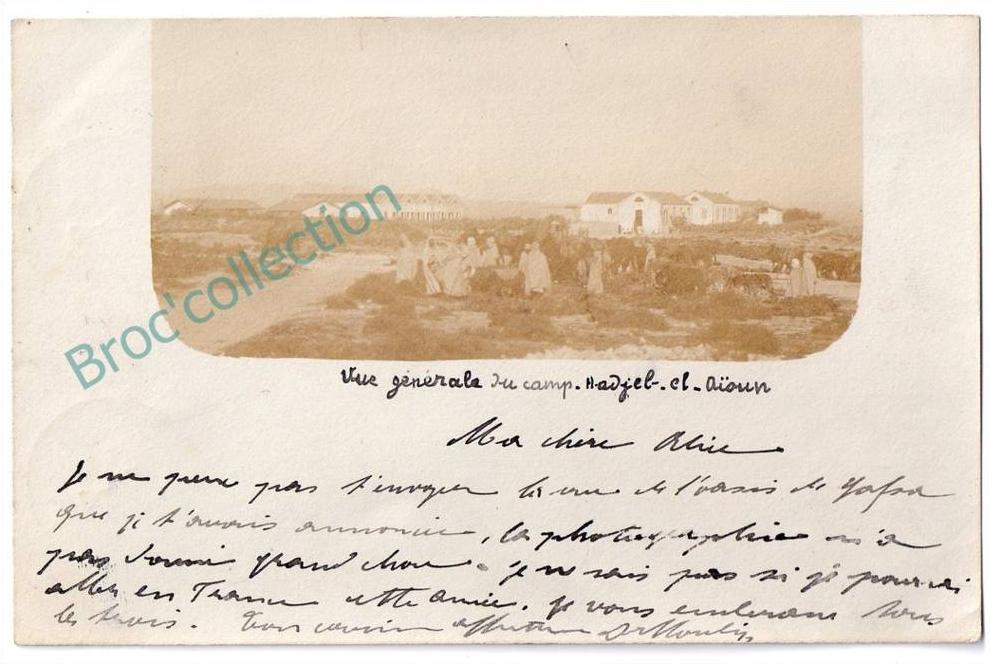 Broc'collection
Vue générale du camp. Hadjeb-el-Aïoun
Ma chère
Je ne peux pas t'envoyer la vue de l'oasis de Gafsa
que je t'avais annoncée, la photographie n'a
pas donné grand chose. je ne sais pas si je pourrai
aller en France cette année. Je vous embrasse tous
les trois. Ton cousin